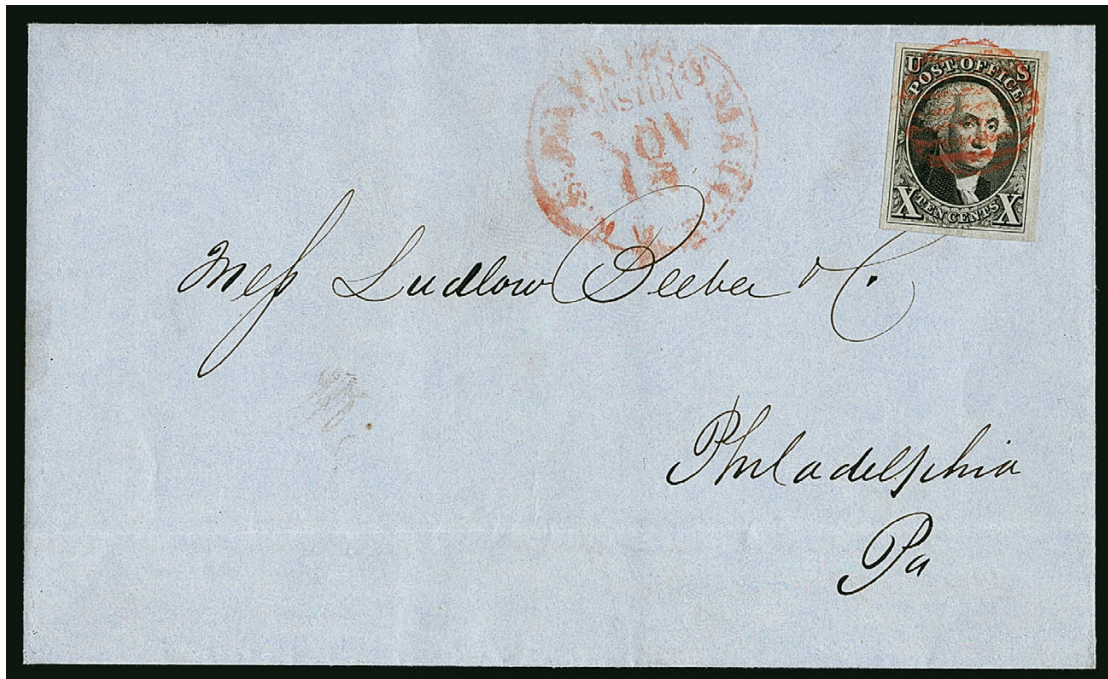 U S
POST OFFICE
X TEN CENTS X
NOV
Mess Ludlow Beeber & C.
Philadelphia
Pa